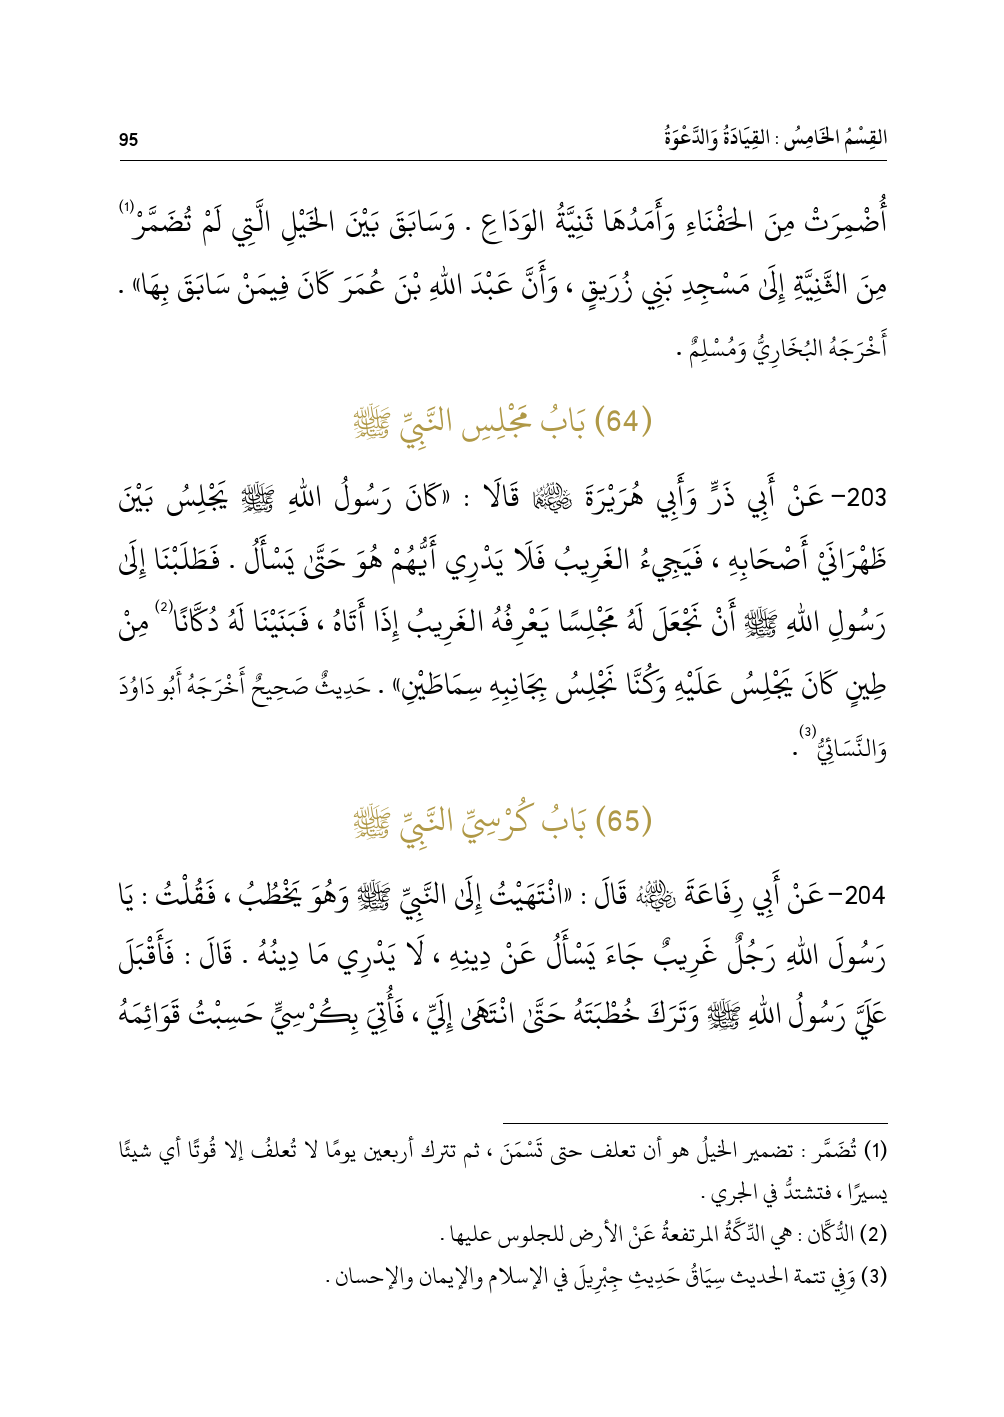 القِسْمُ الخَامِسُ : القِيَادَةُ وَالدَّعْوَةُ 95
أُضْمِرَتْ مِنَ الحَفْنَاءِ وَأَمَدُهَا ثَنِيَّةُ الوَدَاعِ . وَسَابَقَ بَيْنَ الخَيْلِ الَّتِي لَمْ تُضَمَّرْ(1)
مِنَ الثَّنِيَّةِ إِلَىٰ مَسْجِدِ بَنِي زُرَيقٍ ، وَأَنَّ عَبْدَ اللهِ بْنَ عُمَرَ كَانَ فِيمَنْ سَابَقَ بِهَا» .
أَخْرَجَهُ البُخَارِيُّ وَمُسْلِمٌ .
(64) بَابُ مَجْلِسِ النَّبِيِّ ﷺ
203- عَنْ أَبِي ذَرٍّ وَأَبِي هُرَيْرَةَ رضي الله عنهما قَالَا : «كَانَ رَسُولُ اللهِ ﷺ يَجْلِسُ بَيْنَ
ظَهْرَانَيْ أَصْحَابِهِ ، فَيَجِيءُ الغَرِيبُ فَلَا يَدْرِي أَيُّهُمْ هُوَ حَتَّىٰ يَسْأَلُ . فَطَلَبْنَا إِلَىٰ
رَسُولِ اللهِ ﷺ أَنْ نَجْعَلَ لَهُ مَجْلِسًا يَعْرِفُهُ الغَرِيبُ إِذَا أَتَاهُ ، فَبَنَيْنَا لَهُ دُكَّانًا(2) مِنْ
طِينٍ كَانَ يَجْلِسُ عَلَيْهِ وَكُنَّا نَجْلِسُ بِجَانِبِهِ سِمَاطَيْنِ» . حَدِيثٌ صَحِيحٌ أَخْرَجَهُ أَبُو دَاوُدَ
وَالنَّسَائِيُّ(3).
(65) بَابُ كُرْسِيِّ النَّبِيِّ ﷺ
204- عَنْ أَبِي رِفَاعَةَ رضي الله عنه قَالَ : «انْتَهَيْتُ إِلَىٰ النَّبِيِّ ﷺ وَهُوَ يَخْطُبُ ، فَقُلْتُ : يَا
رَسُولَ اللهِ رَجُلٌ غَرِيبٌ جَاءَ يَسْأَلُ عَنْ دِينِهِ ، لَا يَدْرِي مَا دِينُهُ . قَالَ : فَأَقْبَلَ
عَلَيَّ رَسُولُ اللهِ ﷺ وَتَرَكَ خُطْبَتَهُ حَتَّىٰ انْتَهَىٰ إِلَيَّ ، فَأُتِيَ بِكُرْسِيٍّ حَسِبْتُ قَوَائِمَهُ
(1) تُضَمَّر : تضمير الخيلُ هو أن تعلف حتى تَسْمَنَ ، ثم تترك أربعين يومًا لا تُعلفُ إلا قُوتًا أي شيئًا
يسيرًا ، فتشتدُّ في الجري .
(2) الدُّكَّان : هي الدِّكَّةُ المرتفعةُ عَنْ الأرض للجلوس عليها .
(3) وَفِي تتمة الحديث سِيَاقُ حَدِيثِ جِبْرِيلَ في الإسلام والإيمان والإحسان .